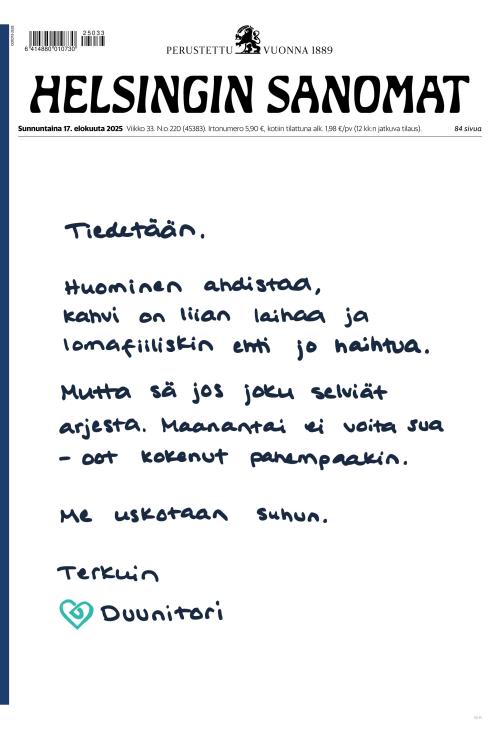 25033
6 414880 010730
PERUSTETTU VUONNA 1889
HELSINGIN SANOMAT
Sunnuntaina 17. elokuuta 2025 Viikko 33. N:o 220 (45383). Irtonumero 5,90 €, kotiin tilattuna alk. 1,98 €/pv (12 kk:n jatkuva tilaus). 84 sivua
Tiedetään.
Huominen ahdistaa,
kahvi on liian laihaa ja
lomafiiliskin ehti jo haihtua.
Mutta sä jos joku selviät
arjesta. Maanantai ei voita sua
– oot kokenut pahempaakin.
Me uskotaan suhun.
Terkuin
Duunitori